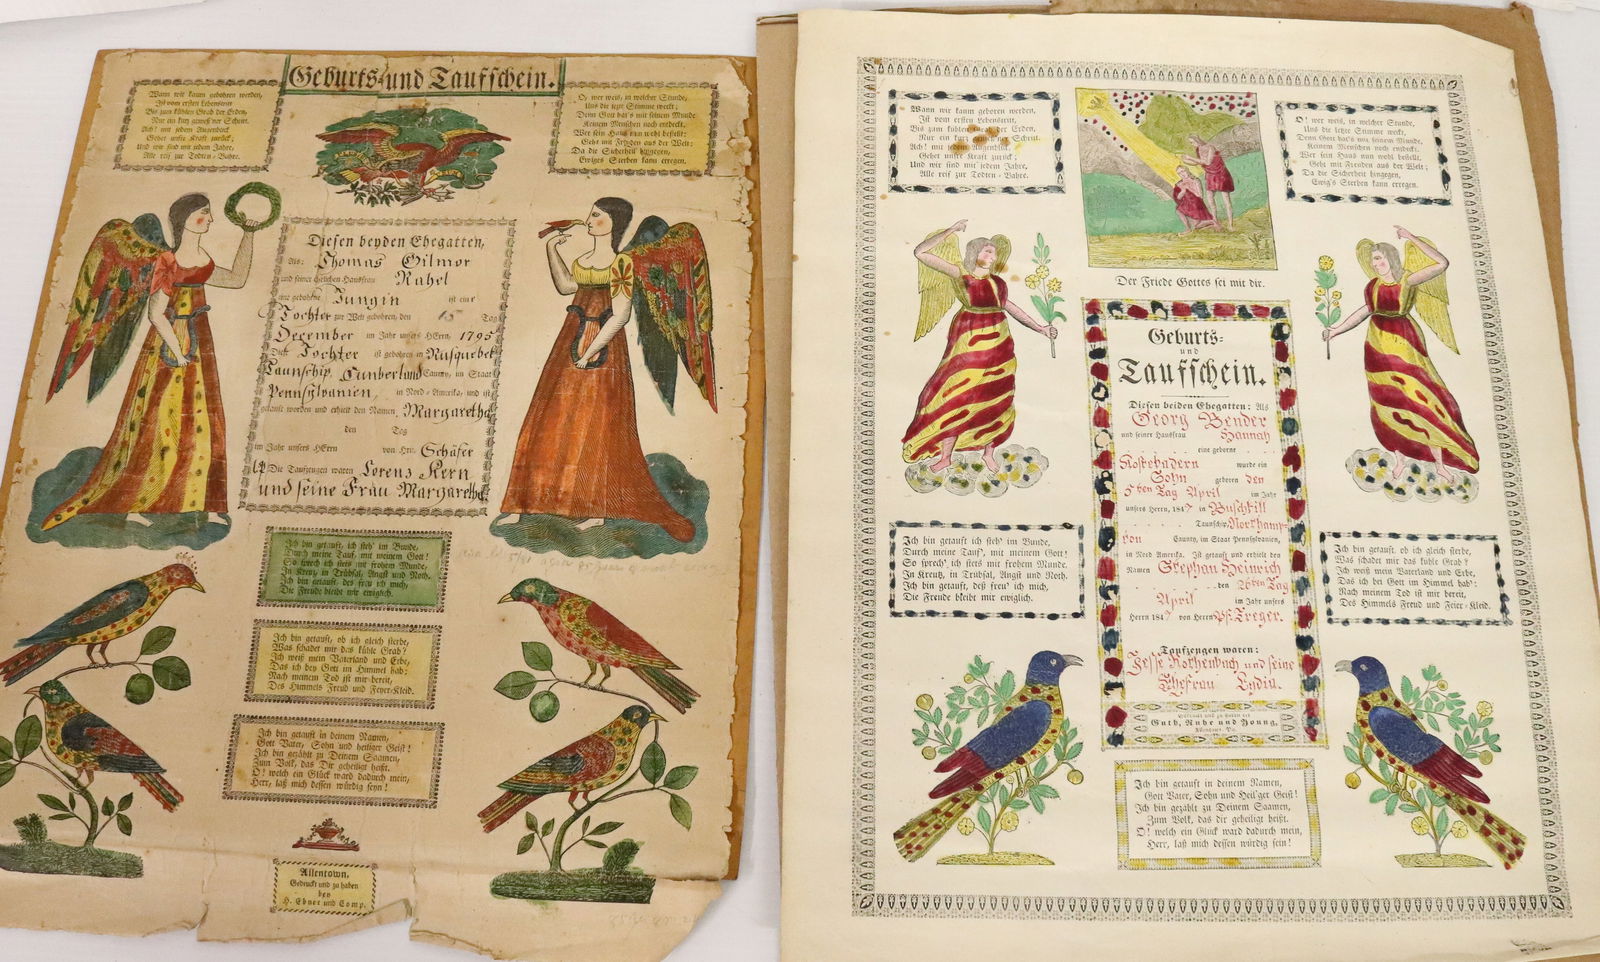 Geburts- und Taufschein.
Wann wir kaum gebohren werden,
Ist vom ersten Lebenstritt
Bis zum kühlen Grab der Erden,
Nur ein kurz gemeß'ner Schritt.
Ach! mit jedem Augenblick
Gehet unsre Kraft zurück,
Und wir sind mit jedem Jahre,
Alle reif zur Todten-Bahre.
O! wer weis, in welcher Stunde,
Uns die letzte Stimme weckt;
Denn Gott hat's mit seinem Munde
Keinem Menschen noch entdeckt.
Wer sein Haus nun wohl bestellt:
Geht mit Freuden aus der Welt;
Da die Sicherheit hingegen,
Ewiges Sterben kann erregen.
Diesen beyden Ehegatten,
Als: Thomas Gilmor
und seiner ehelichen Hausfrau Rahel
eine gebohrne Jungin ist eine
Tochter zur Welt gebohren, den 15 Tag
December im Jahr unsers HErrn 1795
Diese Tochter ist gebohren in
Taunschip, Cunberland Caunty, im Staat
Pennsylvanien, in Nord-Amerika, und ist
getauft worden und erhielt den Namen, Margaretha
den Tag
im Jahr unsers HErrn von Hrn. Schäfer
Die Taufzeugen waren Lorenz Kern
und seine Frau Margaretha
Ich bin getauft, ich steh' im Bunde,
Durch meine Tauf, mit meinem Gott!
So sprech ich stets mit frohem Munde,
In Kreuz, in Trübsal, Angst und Noth.
Ich bin getauft, des freu ich mich,
Die Freude bleibt mir ewiglich.
Ich bin getauft, ob ich gleich sterbe,
Was schadet mir das kühle Grab?
Ich weiß mein Vaterland und Erbe,
Das ich bey Gott im Himmel hab;
Nach meinem Tod ist mir bereit,
Des Himmels Freud und Feyer-Kleid.
Ich bin getauft in deinem Namen,
Gott Vater, Sohn und heiliger Geist!
Ich bin gezählt zu Deinem Saamen,
Zum Volk, das Dir geheiligt heißt.
O! welch ein Glück ward dadurch mein,
Herr, laß mich dessen würdig seyn!
Allentown,
Gedruckt und zu haben
bey
H. Ebner und Comp.
Wann wir kaum geboren werden,
Ist vom ersten Lebenstritt,
Bis zum kühlen Grab der Erden,
Nur ein kurz gemeß'ner Schritt.
Ach! mit jedem Augenblick,
Gehet unsre Kraft zurück;
Und wir sind mit jedem Jahre,
Alle reif zur Todten-Bahre.
O! wer weis, in welcher Stunde,
Uns die letzte Stimme weckt,
Denn Gott hat's mit seinem Munde,
Keinem Menschen noch entdeckt.
Wer sein Haus nun wohl bestellt,
Geht mit Freuden aus der Welt;
Da die Sicherheit hingegen,
Ewig's Sterben kann erregen.
Der Friede Gottes sei mit dir.
Geburts-
und
Taufschein.
Diesen beiden Ehegatten: Als
Georg Bender
und seiner Hausfrau Hannah
eine geborne
wurde ein
Sohn geboren den
5ten Tag April im Jahr
unsers Herrn, 1847 in Buschkill
Taunschip, Northamp-
ton Caunty, im Staat Pennsylvanien,
in Nord Amerika. Ist getauft und erhielt den
Namen Stephan Heinrich
den 26ten Tag
April im Jahr unsers
Herrn 1847 von Herrn Pf. Treger.
Taufzeugen waren:
Jesse Rothenbuch und seine
Ehefrau Lydia.
Gedruckt und zu haben bei
Guth, Ruhe und Young,
Allentaun, Pa.
Ich bin getauft ich steh' im Bunde,
Durch meine Tauf', mit meinem Gott!
So sprech' ich stets mit frohem Munde,
In Kreutz, in Trübsal, Angst und Noth.
Ich bin getauft, deß freu' ich mich,
Die Freude bleibt mir ewiglich.
Ich bin getauft, ob ich gleich sterbe,
Was schadet mir das kühle Grab?
Ich weiß mein Vaterland und Erbe,
Das ich bei Gott im Himmel hab';
Nach meinem Tod ist mir bereit,
Des Himmels Freud und Feier-Kleid.
Ich bin getauft in deinem Namen,
Gott Vater, Sohn und Heil'ger Geist!
Ich bin gezählt zu Deinem Saamen,
Zum Volk, das dir geheiligt heißt.
O! welch ein Glück ward dadurch mein,
Herr, laß mich dessen würdig sein!